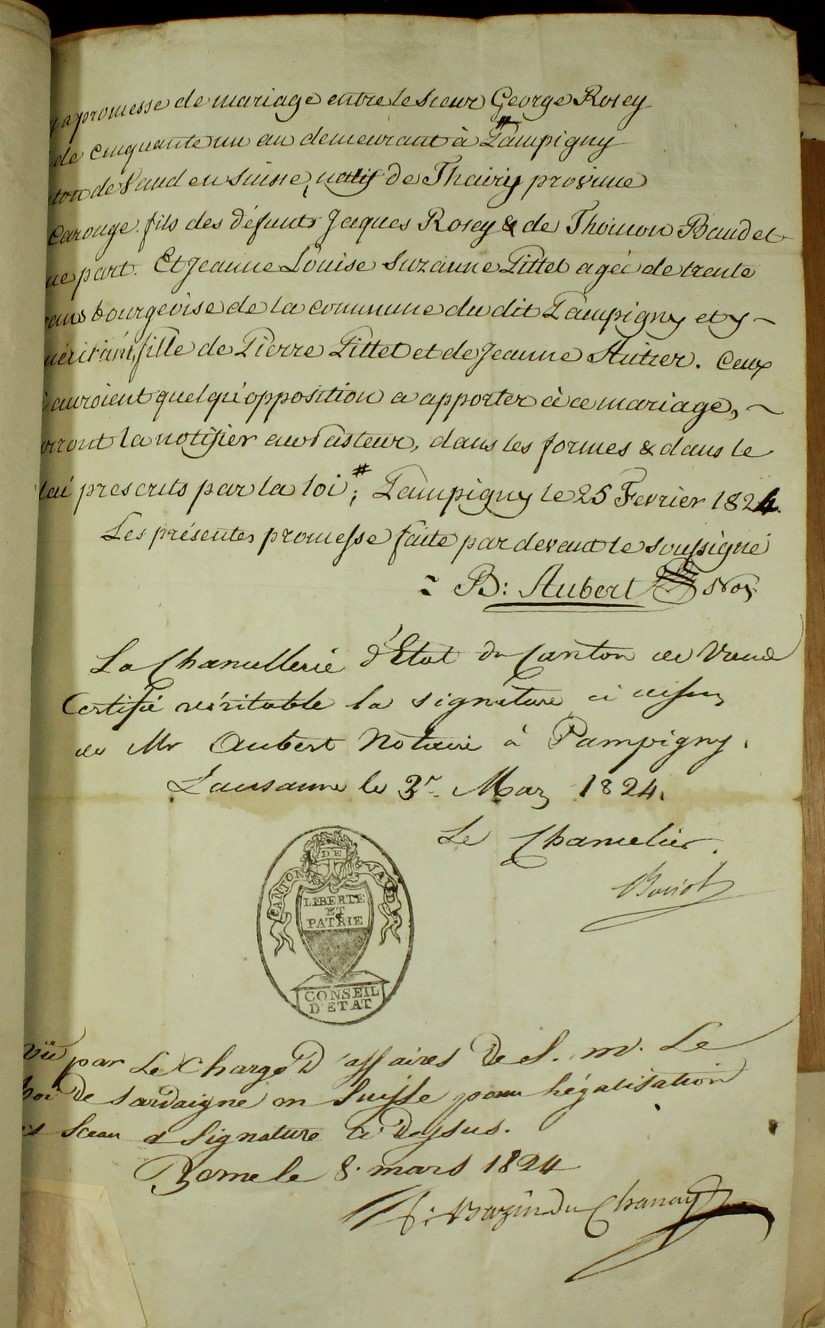 y a promesse de mariage entre le sieur George Rosey
de cinquante un an demeurant à Pampigny
ton de Vaud en Suisse, natif de Thairy province
Carouge. fils des défunts Jaques Rosey & de Thoinon Baudet
ne part. Et Jeanne Louise Suzanne Pittet agée de trente
ans bourgeoise de la commune du dit Pampigny et y ~
fille de Pierre Pittet et de Jeanne Autier. Ceux
auroient quelqu'opposition a apporter à ce mariage, ~
rront la notifier au Pasteur, dans les formes & dans le
lai prescrits par la loi; # Pampigny le 25 Fevrier 1824.
Les présentes promesse faite par devant le soussigné
B: Aubert Not
La Chancellerie d'Etat du Canton de Vaud
Certifie véritable la signature ci dessus
de Mr Aubert Notaire à Pampigny.
Lausanne le 3r Mars 1824.
Le Chancelier.
CANTON DE VAUD
LIBERTE
ET
PATRIE
CONSEIL
D'ETAT
Vu par Le Chargé D'affaires De S. M. Le
Roi De Sardaigne en Suisse pour légalisation
Sceau & Signature Ci Dessus.
Berne le 8. mars 1824